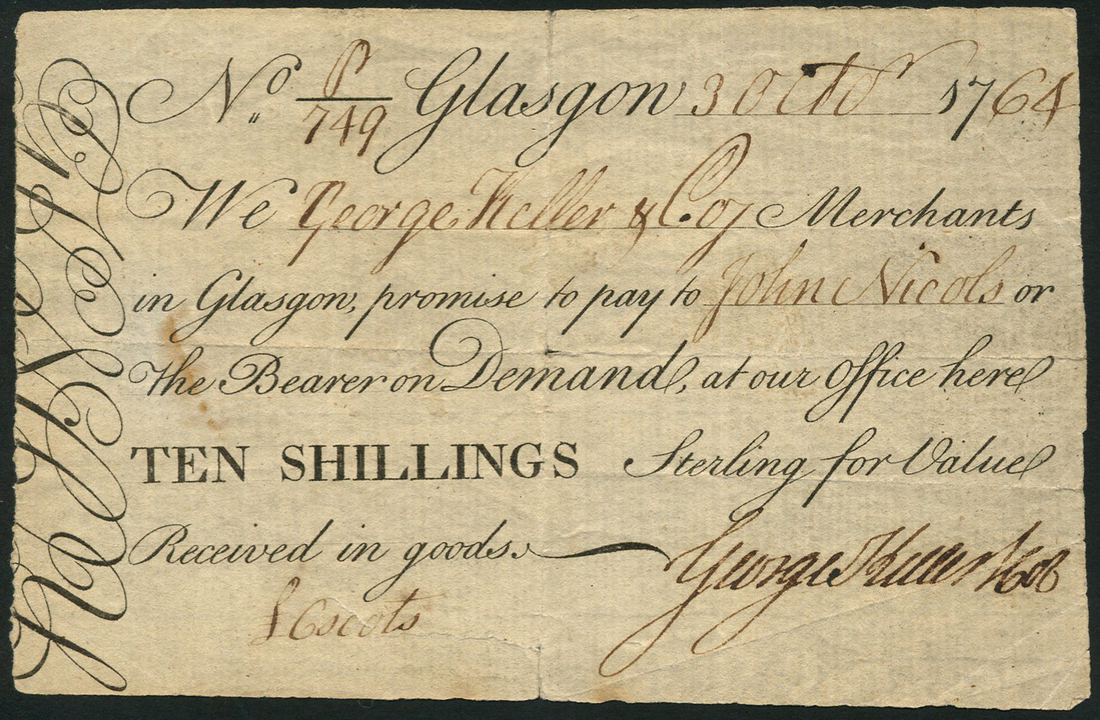 No. P/749 Glasgow 3 Octor 1764
We George Keller & Coy Merchants
in Glasgow, promise to pay to John Nicols or
The Bearer on Demand, at our Office here
TEN SHILLINGS Sterling for Value
Received in goods. George Keller & Co
£6 scots